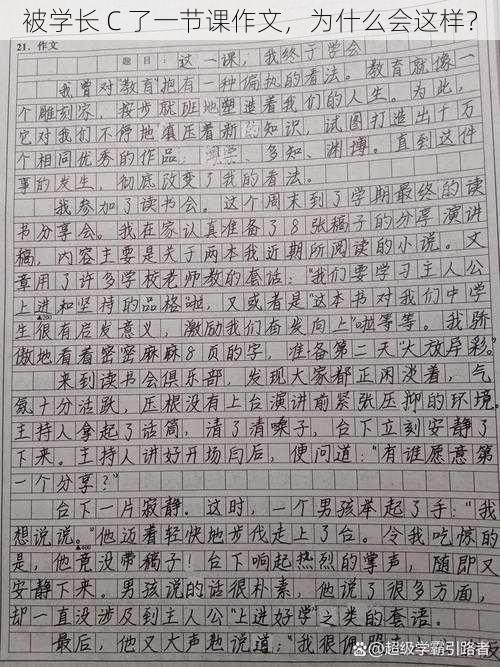 被学长 C 了一节课作文，为什么会这样？
21. 作文
题目：这一课，我终于学会
我曾对“教育”抱有一种偏执的看法。教育就像一
个雕刻家，按步就班地塑造着我们的人生。为此，
它对我们不停地填压着新的知识，试图打造出十万
个相同优秀的作品：、多知、渊博。直到这件
事的发生，彻底改变了我的看法。
我参加了读书会。这个周末到了学期最终的读
书分享会。我在家认真准备了8张稿子的分享演讲
稿，内容主要是关于两本我近期所阅读的小说。文
章用了许多学校老师教的套话：“我们要学习主人公
上进和坚持的品格”啦，又或者是“这本书对我们中学
生很有启发意义，激励我们奋发向上”啦等等。我骄
傲地看着密密麻麻8页的字，准备第二天“大放异彩”。
来到读书会俱乐部，发现大家都正闲没着，气
氛十分活跃，压根没有上台演讲前紧张压抑的环境。
主持人拿起了话筒，清了清嗓子，台下立刻安静了
下来。主持人讲好开场白后，便问道：“有谁愿意第
一个分享？”
台下一片寂静。这时，一个男孩举起了手：“我
想说说。”他迈着轻快地步伐走上了台。令我吃惊的
是，他竟没带稿子！台下响起热烈的掌声，随即又
安静下来。男孩说的话很朴素，他说了很多方面，
却一直没涉及到主人公“上进好学”之类的套语。
最后，他又大声地说道：“我很佩服
超级学霸引路者